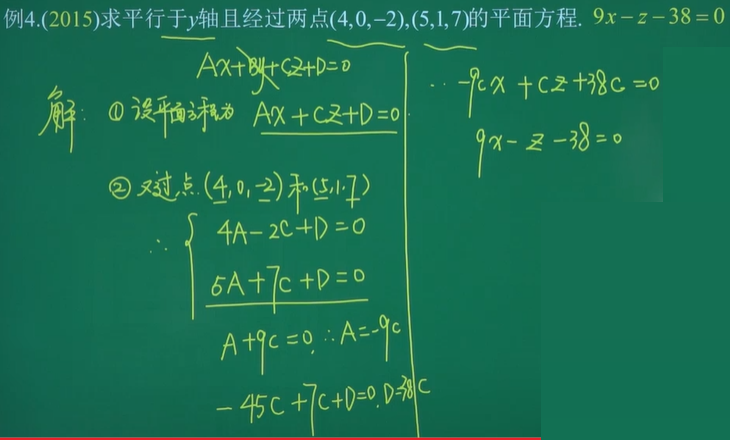 例4.(2015)求平行于y轴且经过两点(4,0,−2),(5,1,7)的平面方程. 9x−z−38=0
Ax+By+Cz+D=0
解: ①设平面方程为 Ax+Cz+D=0
②又过点(4,0,-2)和(5,1,7)
∴ { 4A-2C+D=0
5A+7C+D=0
A+9C=0, ∴A=-9C
-45C+7C+D=0, D=38C
-9Cx+Cz+38C=0
9x-z-38=0